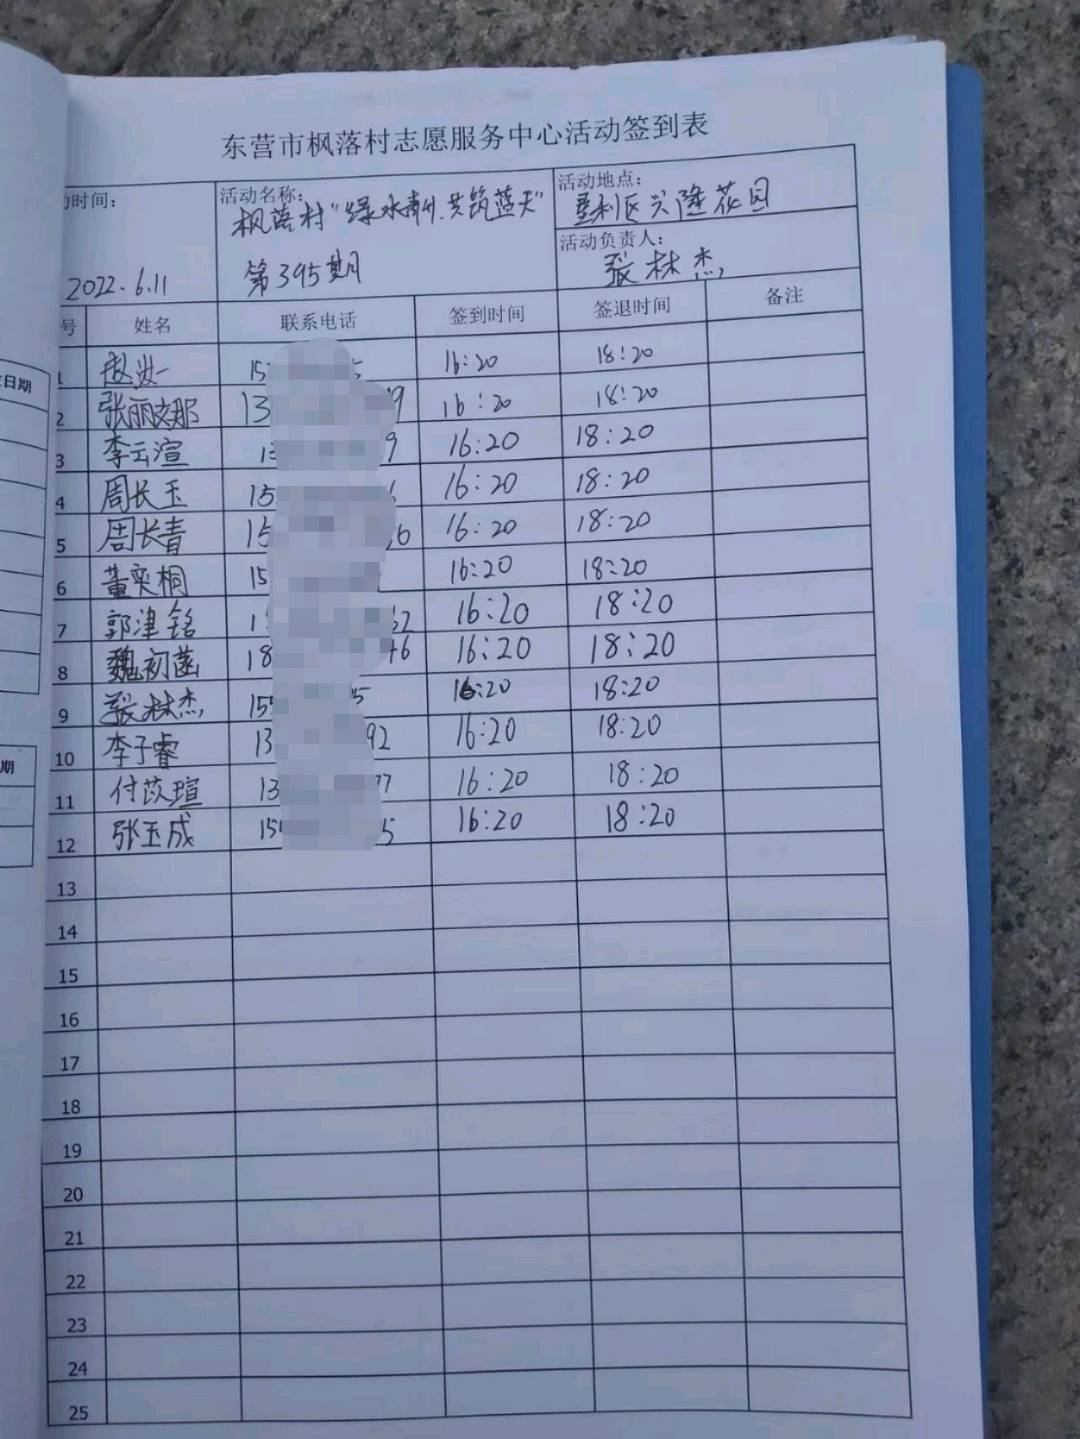 东营市枫落村志愿服务中心活动签到表
动时间：
2022.6.11
活动名称：
枫落村"绿水青山.共筑蓝天"
第395期
活动地点：
垦利区兴隆花园
活动负责人：
张林杰
号 姓名 联系电话 签到时间 签退时间 备注
1 赵 一 15 5 16:20 18:20
2 张丽娜 13 9 16:20 18:20
3 李云渲 13 9 16:20 18:20
4 周长玉 15 6 16:20 18:20
5 周长青 15 6 16:20 18:20
6 董奕桐 15 16:20 18:20
7 郭津铭 1 62 16:20 18:20
8 魏初菡 18 46 16:20 18:20
9 张林杰 155 5 16:20 18:20
10 李子睿 13 92 16:20 18:20
11 付苡瑄 13 77 16:20 18:20
12 张玉成 155 5 16:20 18:20
13
14
15
16
17
18
19
20
21
22
23
24
25
日期
期